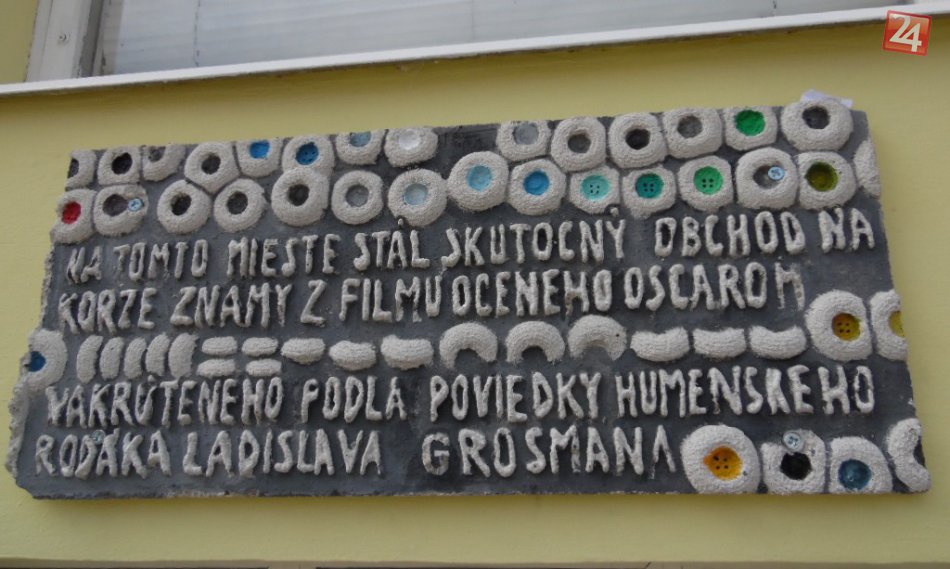 24
NA TOMTO MIESTE STÁL SKUTOCNÝ OBCHOD NA
KORZE ZNAMY Z FILMU OCENEHO OSCAROM
NAKRÚTENEHO PODLA POVIEDKY HUMENSKEHO
RODÁKA LADISLAVA GROSMANA